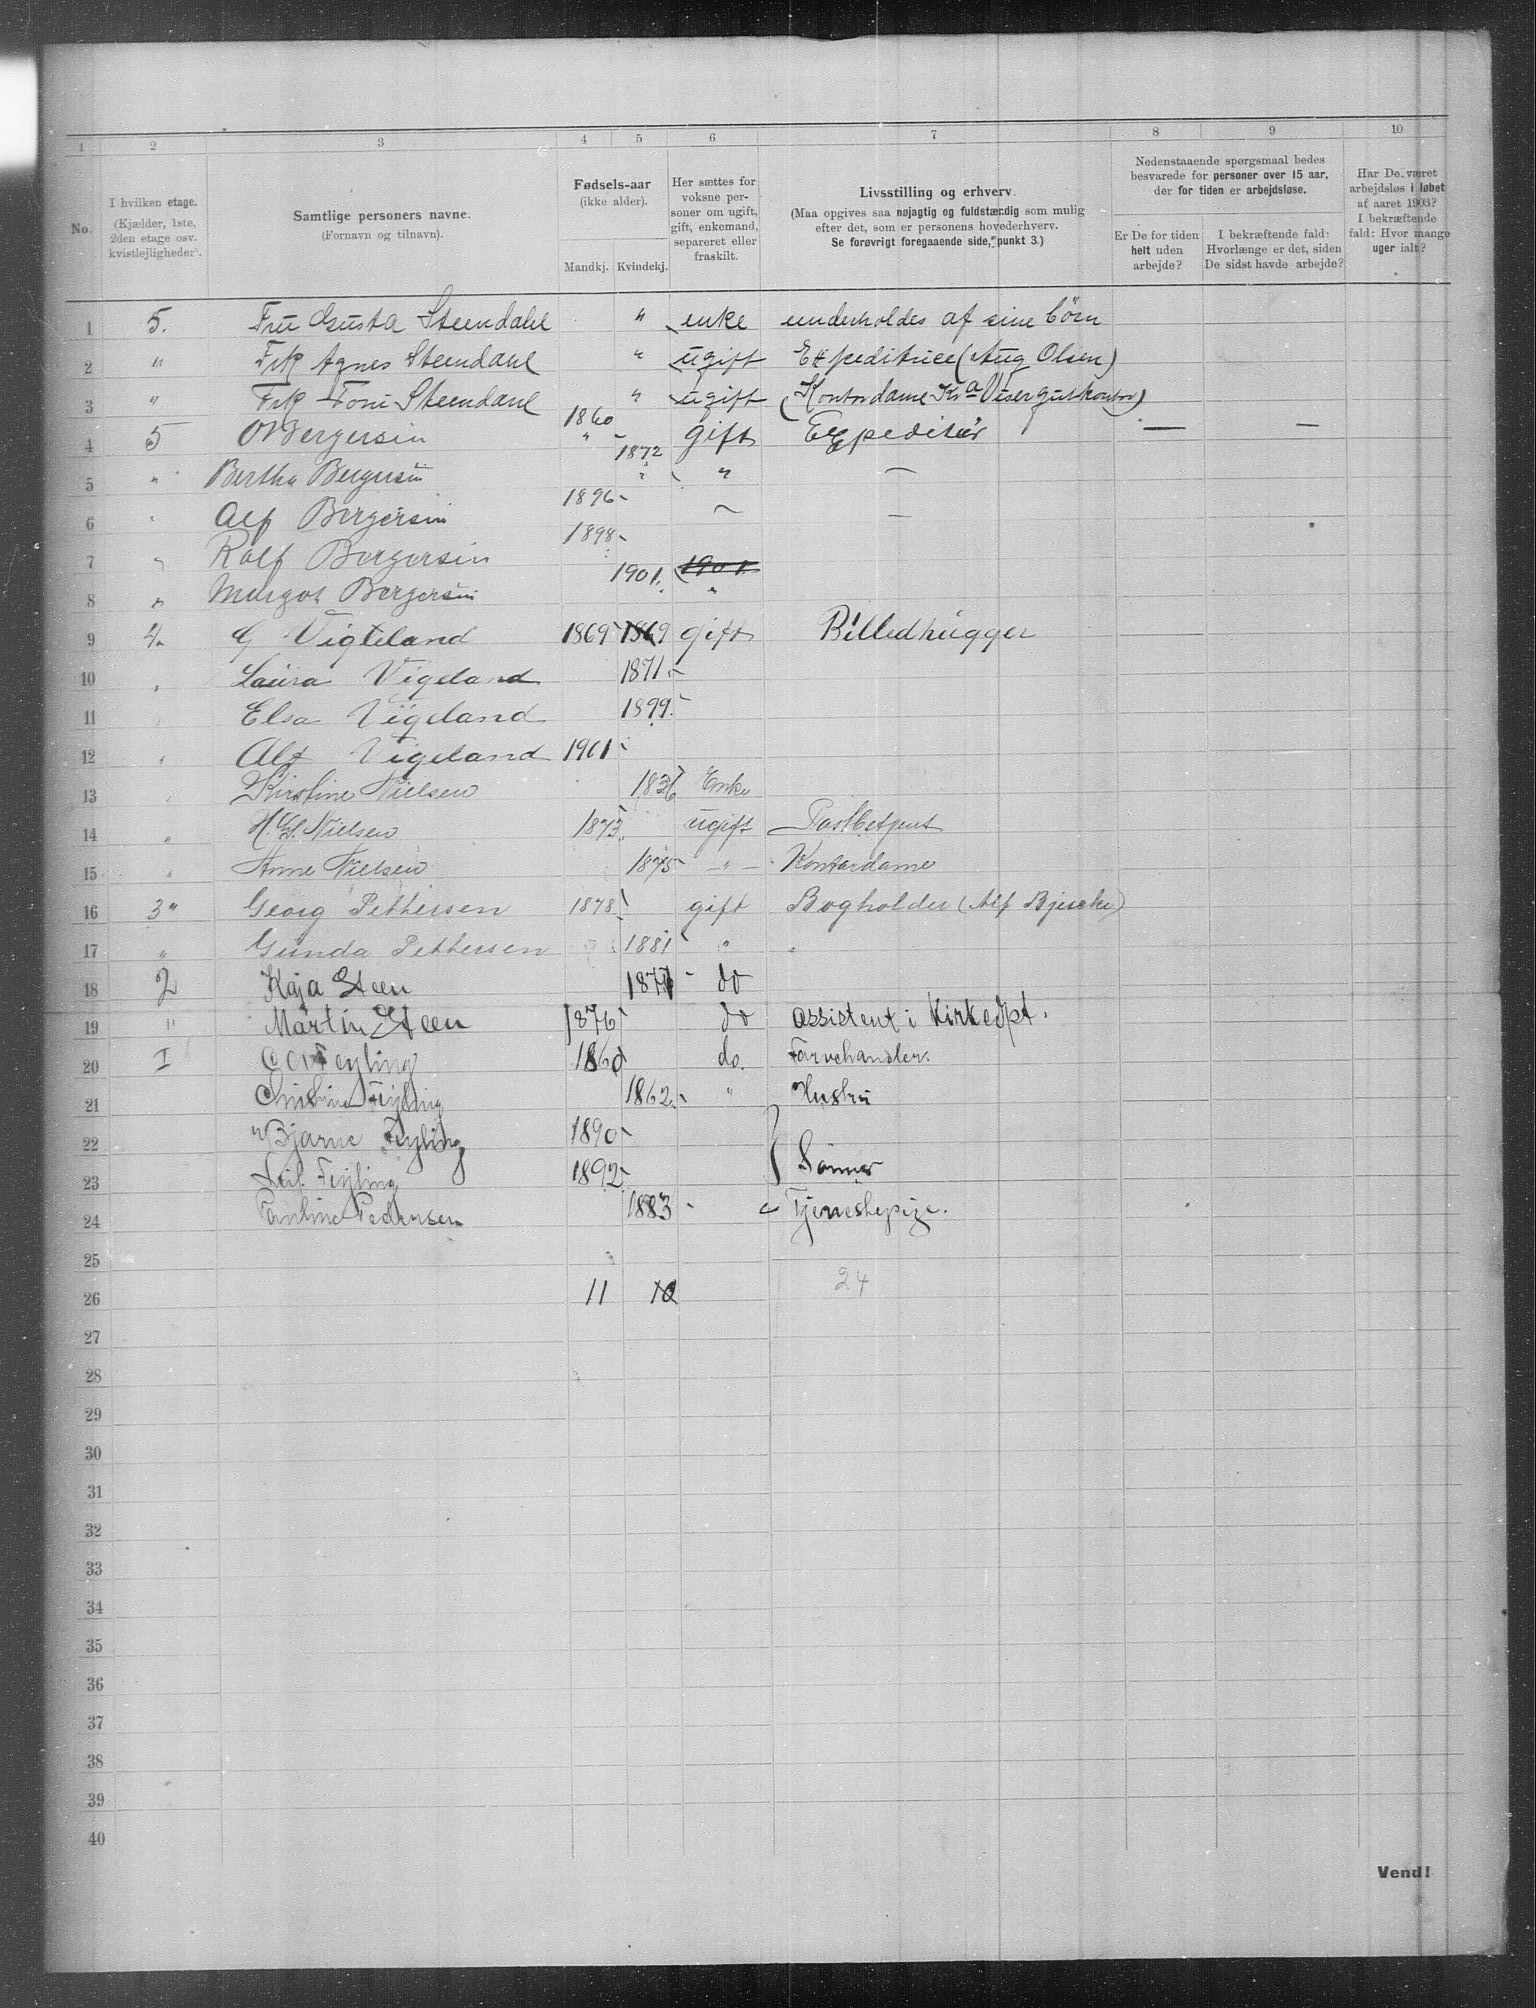 1 2 3 4 5 6 7 8 9 10
No.
I hvilken etage.
(Kjælder, 1ste,
2den etage osv.
kvistlejligheder).
Samtlige personers navne.
(Fornavn og tilnavn).
Fødsels-aar
(ikke alder).
Mandkj. Kvindekj.
Her sættes for
voksne per-
soner om ugift,
gift, enkemand,
separeret eller
fraskilt.
Livsstilling og erhverv.
(Maa opgives saa nøjagtig og fuldstændig som mulig
efter det, som er personens hovederhverv.
Se forøvrigt foregaaende side, punkt 3.)
Nedenstaaende spørgsmaal bedes
besvarede for personer over 15 aar,
der for tiden er arbejdsløse.
Er De for tiden
helt uden
arbejde?
I bekræftende fald:
Hvorlænge er det, siden
De sidst havde arbejde?
Har De været
arbejdsløs i løbet
af aaret 1903?
I bekræftende
fald: Hvor mange
uger ialt?
1 5. Fru Gusta Steendahl " enke underholdes af sine börn
2 " Frk Agnes Steendahl " ugift Expeditrice (Aug Olsen)
3 " Frk Toni Steendahl " ugift (Kontordame Kra Visergutkontor)
4 5 O Bergersen 1860 gift Expeditör — —
5 " Bertha Bergersen 1872 " —
6 " Alf Bergersen 1896 — —
7 " Rolf Bergersen 1898 1901
8 " Margot Bergersen 1901. "
9 4. G Vigeland 1869 1869 gift Billedhugger
10 " Laura Vigeland 1871
11 " Elsa Vigeland 1899
12 " Alf Vigeland 1901
13 " Kirstine Nielsen 1836 Enke
14 " H. Nielsen 1873 ugift Postbetjent
15 " Anne Nielsen 1875 " Kontordame
16 3" Georg Pettersen 1878 gift Bogholder (Alf Bjercke)
17 " Gunda Pettersen 1881 " "
18 2 Kaja Steen 1871 do
19 " Martin Steen 1876 do assistent i Kirkedpt.
20 I Feyling 1860 do. Farvehandler.
21 Christine Feyling 1862 " Hustru
22 Bjarne Feyling 1890
23 Leif Feyling 1892 } Sönner
24 Pauline Pedersen 1883 Tjenestepige.
25
26 11 10 24
27
28
29
30
31
32
33
34
35
36
37
38
39
40
Vend!